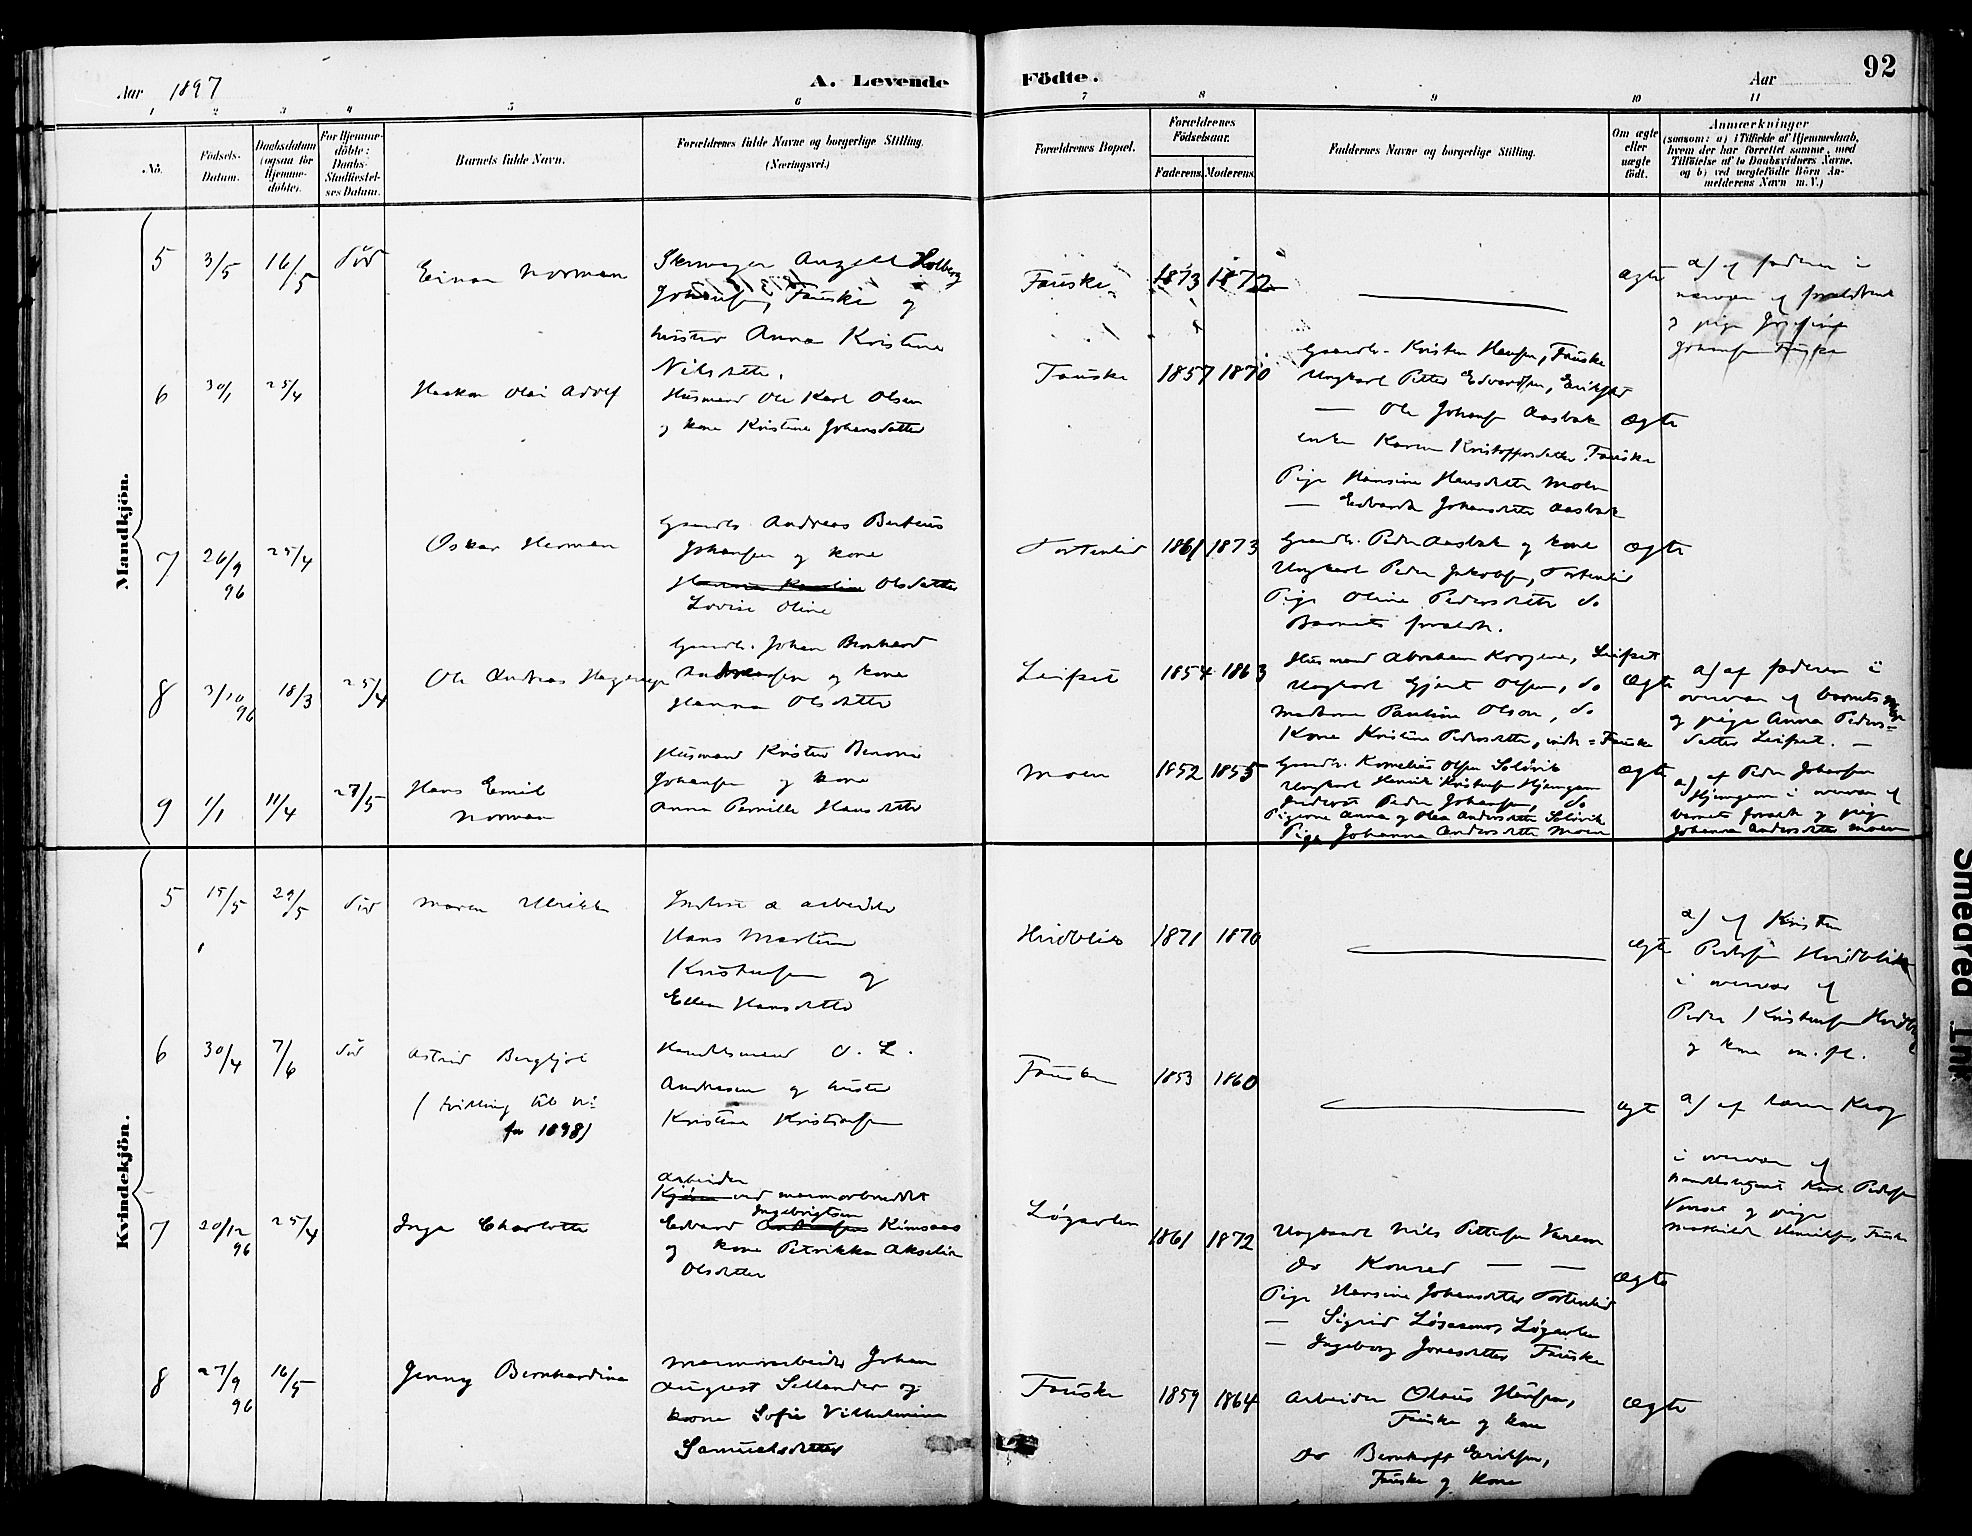 92
Aar 1897
A. Levende Födte.
Aar
1 2 3 4 5 6 7 8 9 10 11
No.
Födsels-Datum.
Daabsdatum (ogsaa for Hjemme-döbte).
For Hjemme-döbte: Daabs-Stadfæstel-ses Datum.
Barnets fulde Navn.
Forældrenes fulde Navne og borgerlige Stilling.
(Næringsvei.)
Forældrenes Bopæl.
Forældrenes Födselsaar.
Faderens. Moderens.
Faddernes Navne og borgerlige Stilling.
Om ægte eller uægte födt.
Anmærkninger
(saasom: a) i Tilfælde af Hjemmedaab,
hvem der har forrettet samme, med
Tilföielse af to Daabsvidners Navne,
og b) ved uægtefödte Börn An-
melderens Navn m. V.)
Mandkjön.
5 3/5 16/5 död Einar Norman
Angell Holberg
Johansen, Fauske og
hustru Anna Kristine
Nilsdatter.
Fauske 1873 1872
ægte
a) af faderen i
nærvær af forældrene
og pige Josefine
Johansen Fauske
6 30/1 25/4 Haakon Olai Adolf
Husmand Ole Karl Olsen
og kone Kristine Johansdatter
Fauske 1857 1870
Gaardbr. Kristen Hansen, Fauske
Ungkarl Petter Edvardsen,
— Ole Johansen Aasbak
enke Karen Kristoffersdatter Fauske
Pige Hansine Hansdatter Moen
— Edvarda Johansdatter Aasbak
Ægte
7 26/9 96 25/4 Oskar Herman
Gaardbr. Andreas Berteus
Johansen og kone
Olsdatter
Lovise Oline
Tortenlid 1861 1873
Gaardbr. Peder Aasbak og kone
Ungkarl Peder Jakobsen, Tortenlid
Pige Oline Pedersdatter do
Barnets foreldre.
Ægte
8 3/10 96 18/3 25/4 Ole Andreas
Gaardbr. Johan Bernhard
Andreassen og kone
Hanna Olsdatter
Leifset 1854 1863
Husmand Abraham Leifset
Ungkarl Gjert Olsen, do
Madame Pauline Olsen, do
Kone Kristine Pedersdatter, Fauske
Ægte
a) af faderen i
overvær af barnets
og pige Anna Peders-
datter Leifset. —
9 1/1 11/4 27/5 Hans Emil
Norman
Husmand Kristen Benoni
Johansen og kone
Anna Pernille Hansdatter
Moen 1852 1855
Gaardbr. Kornelius Olsen Solvik
Ungkarl Henrik Kristensen Hjemgam
Inderst Peder Johansen, do
Pigerne Anna og Olea Andersdatter Solvik
Pige Johanna Andersdatter Moen
Ægte
a) af Peder Johansen
Hjemgam i overvær af
barnets foreldre og pige
Johanna Andersdatter Moen
Kvindekjön.
5 15/5 29/5 död Maren Ulrikke
Inderst & arbeider
Hans Martin
Kristensen og
Ellen Hansdatter
Hvidblik 1871 1870
ægte
a) af Kristen
Pedersen Hvidblik
i overvær af
Peder Kristensen Hvidblik
og kone m. fl.
6 30/4 7/6 död Astrid Bergljot
(tvilling til Nr.
for 1898)
Handelsmand O. L.
Andreasen og hustru
Kristine Kristiansen
Fauske 1853 1860
ægte
a) af Krog
i overvær af
handelsagent Karl Pedersen
og pige
Mathilde Henriksen, Fauske
7 20/12 96 25/4 Inga Charlotte
Arbeider
ved marmorbruddet
Ingebrigtsen
Edvard Kimsaas
og kone Petrikke Akseline
Olsdatter
Løgavlen 1861 1872
Ungkarl Nils Pettersen
do Konrad — —
Pige Hansine Johansdatter Tortenlid
— Sigrid Løgavlen
— Ingeborg Jonasdatter Fauske
Ægte
8 27/9 96 16/5 Jenny Bernhardine
Marmorarbeider Johan
August Sellander og
kone Sofie Vilhelmine
Samuelsdatter
Fauske 1859 1864
Arbeider Olaus Hansen,
Fauske og kone
do Bernhoft Eriksen,
Fauske og kone
Ægte
Smedred Ink